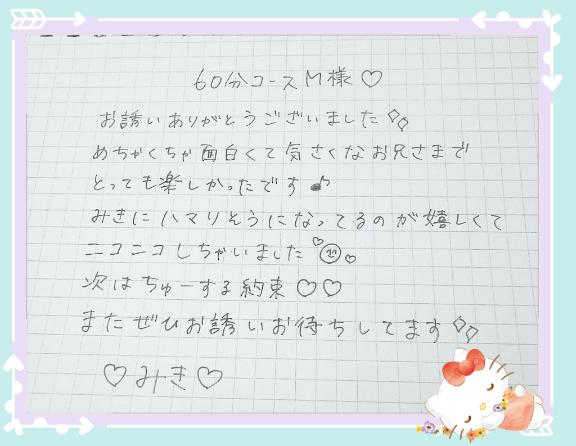 60分コースM様♡
お誘いありがとうございました
めちゃくちゃ面白くて気さくなお兄さまで
とっても楽しかったです♪
みきにハマりそうになってるのが嬉しくて
ニコニコしちゃいました
次はちゅーする約束♡♡
またぜひお誘いお待ちしてます
♡みき♡